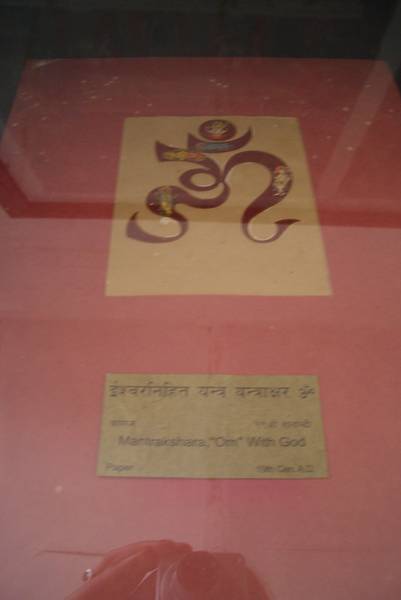 ईश्वरनिहित यन्त्र यन्त्राक्षर ॐ
कागज १९वीं शताब्दी
Mantrakshara,"Om" With God
Paper 19th Cen. A.D.